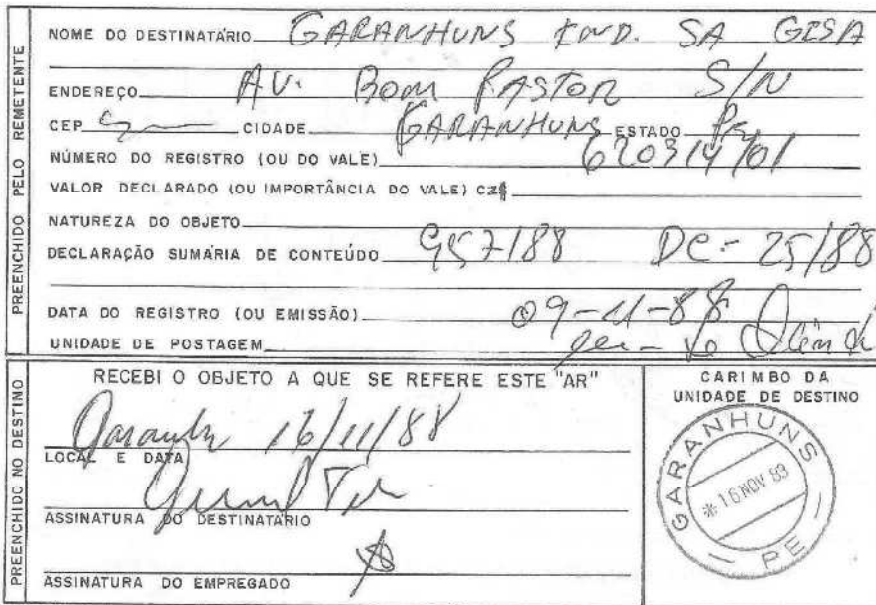 PREENCHIDO PELO REMETENTE
NOME DO DESTINATÁRIO GARANHUNS IND. SA GISA
ENDEREÇO AV. BOM PASTOR S/N
CEP CIDADE GARANHUNS ESTADO PE
NÚMERO DO REGISTRO (OU DO VALE) 620314/01
VALOR DECLARADO (OU IMPORTÂNCIA DO VALE) CZ$
NATUREZA DO OBJETO
DECLARAÇÃO SUMÁRIA DE CONTEÚDO 957/88 DC - 25/88
DATA DO REGISTRO (OU EMISSÃO) 09-11-88
UNIDADE DE POSTAGEM
PREENCHIDO NO DESTINO
RECEBI O OBJETO A QUE SE REFERE ESTE "AR"
16/11/88
LOCAL E DATA
ASSINATURA DO DESTINATÁRIO
ASSINATURA DO EMPREGADO
CARIMBO DA
UNIDADE DE DESTINO
GARANHUNS
* 16 NOV 83
PE